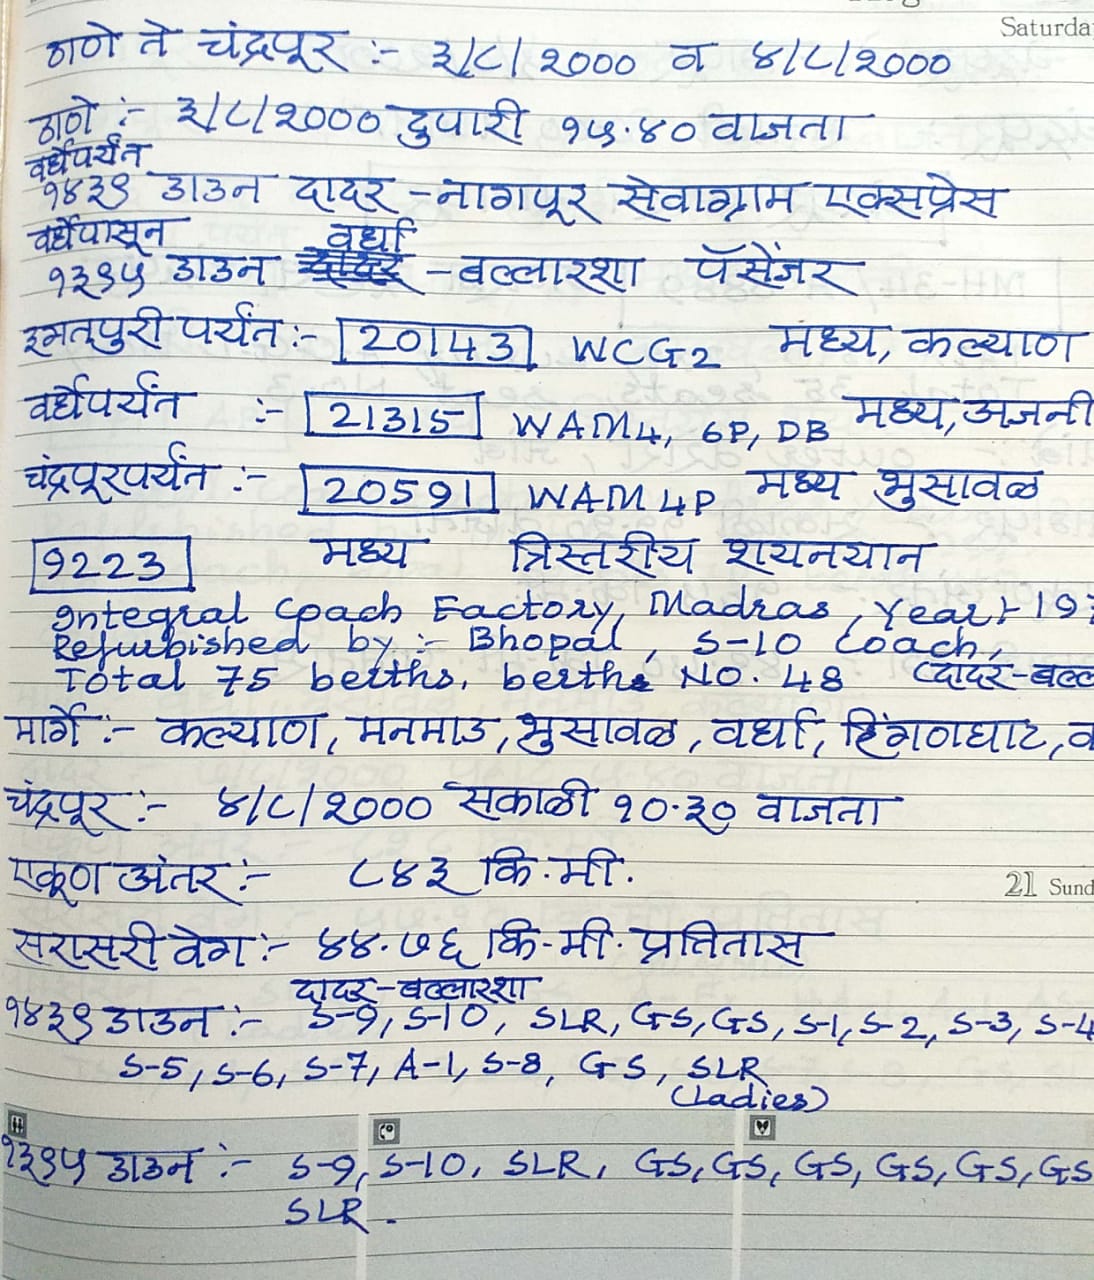 Saturda
ठाणे ते चंद्रपूर :- ३/८/२००० व ४/८/२०००
ठाणे :- ३/८/२००० दुपारी १५.४० वाजता
वर्धेपर्यंत
१४३९ डाउन दादर - नागपूर सेवाग्राम एक्सप्रेस
वर्धेपासून वर्धा
१३९५ डाउन दादर - बल्लारशा पॅसेंजर
इगतपुरी पर्यंत :- 20143 WCG2 मध्य, कल्याण
वर्धेपर्यंत :- 21315 WAM4, 6P, DB मध्य, अजनी
चंद्रपूरपर्यंत :- 20591 WAM4P मध्य भुसावळ
9223 मध्य त्रिस्तरीय शयनयान
Integral Coach Factory, Madras, Year :- 19
Refurbished by :- Bhopal, S-10 Coach,
Total 75 berths, berth NO. 48 (दादर-बल्ल
मार्गे :- कल्याण, मनमाड, भुसावळ, वर्धा, हिंगणघाट, व
चंद्रपूर :- ४/८/२००० सकाळी १०.३० वाजता
एकूण अंतर :- ८४३ कि.मी.
21 Sund
सरासरी वेग :- ४४.७६ कि.मी. प्रतितास
दादर-बल्लारशा
१४३९ डाउन :- S-9, S-10, SLR, GS, GS, S-1, S-2, S-3, S-4
S-5, S-6, S-7, A-1, S-8, GS, SLR
(Ladies)
१३९५ डाउन :- S-9, S-10, SLR, GS, GS, GS, GS, GS, GS
SLR.